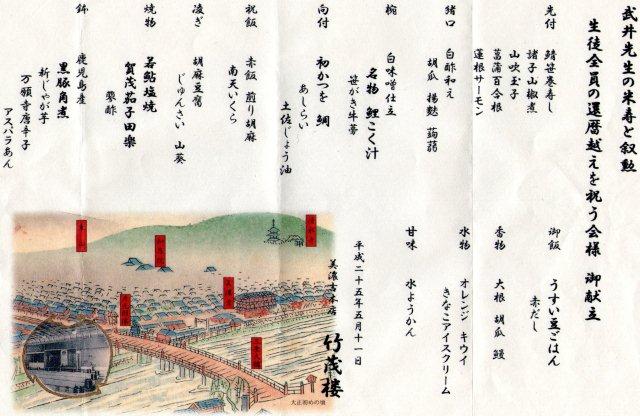 武井先生の米寿と叙勲
生徒全員の還暦越えを祝う会様 御献立
先付 鯖笹巻寿し
諸子山椒煮
山吹玉子
菖蒲百合根
蓮根サーモン
猪口 白酢和え
胡瓜 揚麩 蒟蒻
椀 白味噌仕立
名物 鯉こく汁
笹がき牛蒡
向付 初かつを 鯛
あしらい
土佐じょう油
祝飯 赤飯 煎り胡麻
南天いくら
凌ぎ 胡麻豆腐
じゅんさい 山葵
焼物 若鮎塩焼
賀茂茄子田楽
蓼酢
鉢 鹿児島産
黒豚角煮
新じゃが芋
万願寺唐辛子
アスパラあん
御飯 うすい豆ごはん
赤だし
香物 大根 胡瓜
水物 オレンジ キウイ
きなこアイスクリーム
甘味 水ようかん
平成二十五年五月十一日
美濃吉本店 竹茂楼
大正初めの頃